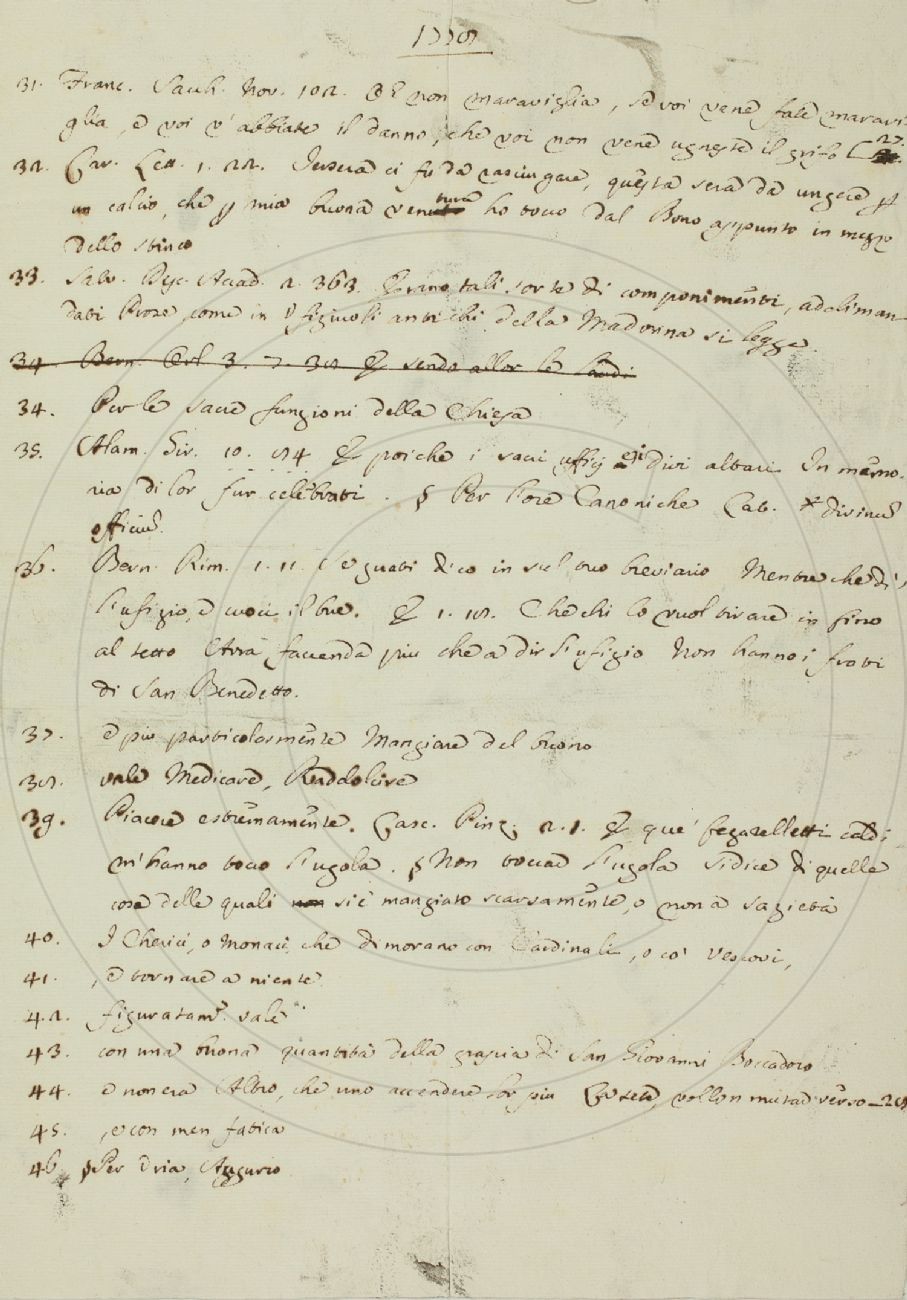 1778
31. Franc. Sacch. Nov. 102. E non maraviglia, se voi vene fate maravi
glia, e voi v'abbiate il danno, che voi non vene ugneste il grifo
32. Car. Lett. 1. 22. Iersera ci fu da rasciugare, questa sera da ungere
un calcio, che mia buona ventura ho tocco dal Bono appunto in mezzo
dello stinco
33. Salv. Disc. Accad. 2. 363. Erano tali sorte di componimenti, adaliman
dati Prose, come in figiuoli antichi della Madonna si legge
34 Bern. Orl. 3. 7. 38 & sendo allor le laudi
34. Per le sacre funzioni della Chiesa
35. Alam. Gir. 10. 84 & poiche i sacri uffizj e i divi altari In memo-
ria di lor fur celebrati. § Per l'ore Canoniche Lat. * divinũ
officiũ.
36. Bern. Rim. 1. 11. Se guati dico in sul tuo breviario Mentre che di'
l'ufizio, e cuoci il bue. & 1. 18. Che chi lo vuol tirare in fino
al tetto Avra faccenda piu che a dir l'ufizio Non hanno i frati
di San Benedetto.
37. e piu particolarmente Mangiare del buono
38. vale Medicare, Raddolcire
39. Piacere estremamente. Casc. Ping. 2. 1. & que' fegatelletti caldi
m'hanno tocco l'ugola. § Non toccar l'ugola si dice di quelle
cose delle quali non si è mangiato scarsamente, o non a sazietà
40. I Cherici, o Monaci, che dimorano con Cardinali, o co' Vescovi,
41. , e tornare a niente
42. figuratam. vale
43. con una buona quantità della grazia di San Giovanni Boccadoro
44. e non era Altro, che uno accendere lor piu La sete, vollon mutar verso - 28
45. , e con men fatica
46 § Per Uria, Augurio